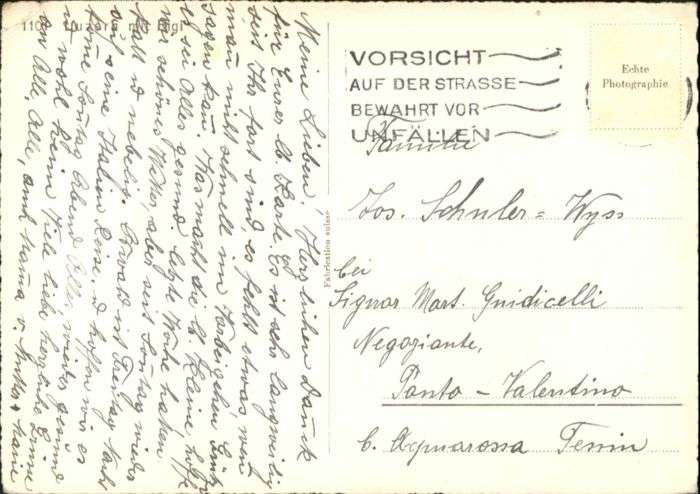 1101 Luzern mit Rigi
Meine Lieben! Herzlichen Dank
für Eurer lb. Karte. Es ist sehr langweilig
seit Ihr fort sind, es fehlt etwas, wenn
man nicht schnell im Vorbeigehen Grüetzi
sagen kann. Was macht die lb. Kleine, hoffe
es sei Alles gesund, letzte Woche haben
wir schönes Wetter, aber seit Sonntag wieder
kalt u nebelig. ist Freitag Nacht
auf seine Italien Reise, u hoffen wir es
komme Sonntag Abend Alles wieder gesund
u wohl heim. Viele liebe herzliche Grüsse
an Alle, Alle, auch Mama v.
Fabrication suisse
VORSICHT
AUF DER STRASSE
BEWAHRT VOR
UNFÄLLEN
Echte
Photographie
Familie
Jos. Schuler=Wyss
bei
Signor Mart. Guidicelli
Negoziante,
Ponto-Valentino
b. Acquarossa Tessin